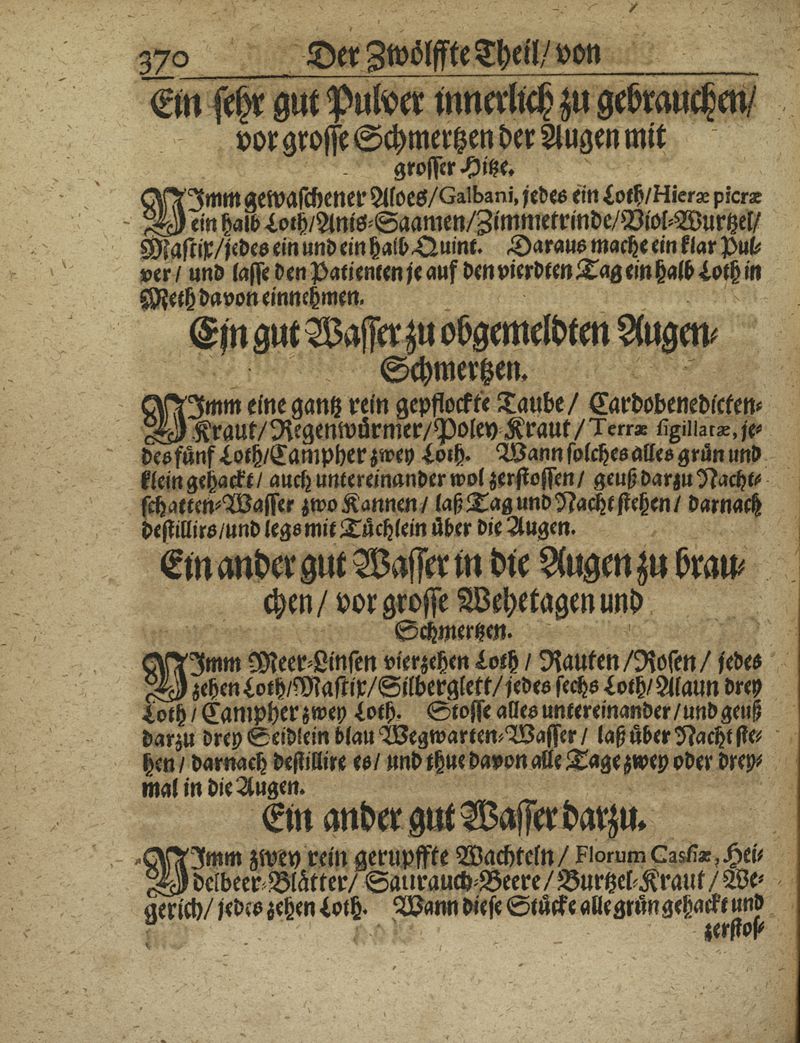 370 Der Zwölffte Theil/ von
Ein sehr gut Pulver innerlich zu gebrauchen/
vor grosse Schmertzen der Augen mit
grosser Hitze.
NImm gewaschener Aloes/Galbani, jedes ein Loth/Hieræ picræ
ein halb Loth/Anis-Saamen/Zimmetrinde/Viol-Wurtzel/
Mastix/jedes ein und ein halb Quint. Daraus mache ein klar Pul-
ver/ und lasse den Patienten je auf den vierdten Tag ein halb Loth in
Meth davon einnehmen.
Ein gut Wasser zu obgemeldten Augen-
Schmertzen.
NImm eine gantz rein gepflockte Taube/ Cardobenedicten-
Kraut/Regenwürmer/Poley-Kraut/Terræ sigillatæ, je-
des fünf Loth/Campher zwey Loth. Wann solches alles grün und
klein gehackt/ auch untereinander wol zerstossen/ geuß darzu Nacht-
schatten-Wasser zwo Kannen/ laß Tag und Nacht stehen/ darnach
destillirs/und legs mit Tüchlein über die Augen.
Ein ander gut Wasser in die Augen zu brau-
chen/ vor grosse Wehetagen und
Schmertzen.
NImm Meer-Linsen vierzehen Loth/ Rauten/Rosen/ jedes
zehen Loth/Mastix/Silberglett/jedes sechs Loth/Alaun drey
Loth/ Campher zwey Loth. Stosse alles untereinander/und geuß
darzu drey Seidlein blau Wegwarten-Wasser/ laß über Nacht ste-
hen/ darnach destillire es/ und thue davon alle Tage zwey oder drey-
mal in die Augen.
Ein ander gut Wasser darzu.
NImm zwey rein gerupffte Wachteln/ Florum Cassiæ, Hei-
delbeer-Blätter/ Saurauch-Beere/Burtzel-Kraut/We-
gerich/ jedes zehen Loth. Wann diese Stücke alle grün gehackt und
zerstos-